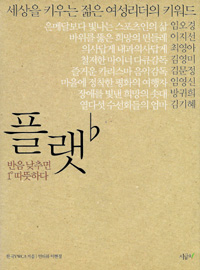 세상을 키우는 젊은 여성리더의 키워드
은메달보다 빛나는 스포츠맨의 삶 임오경
바위를 뚫은 희망의 민들레 이지선
의사답게 내과의사답게 최영아
천재한 마이너 다큐감독 김영미
즐거운 카리스마 음악감독 김문정
마음에 정착한 평화의 여행자 임영신
장애를 빛낸 희망의 손대 방귀희
열다섯 수선화들의 엄마 김기혜
플랫
♭
반음 낮추면
1˚ 따뜻하다